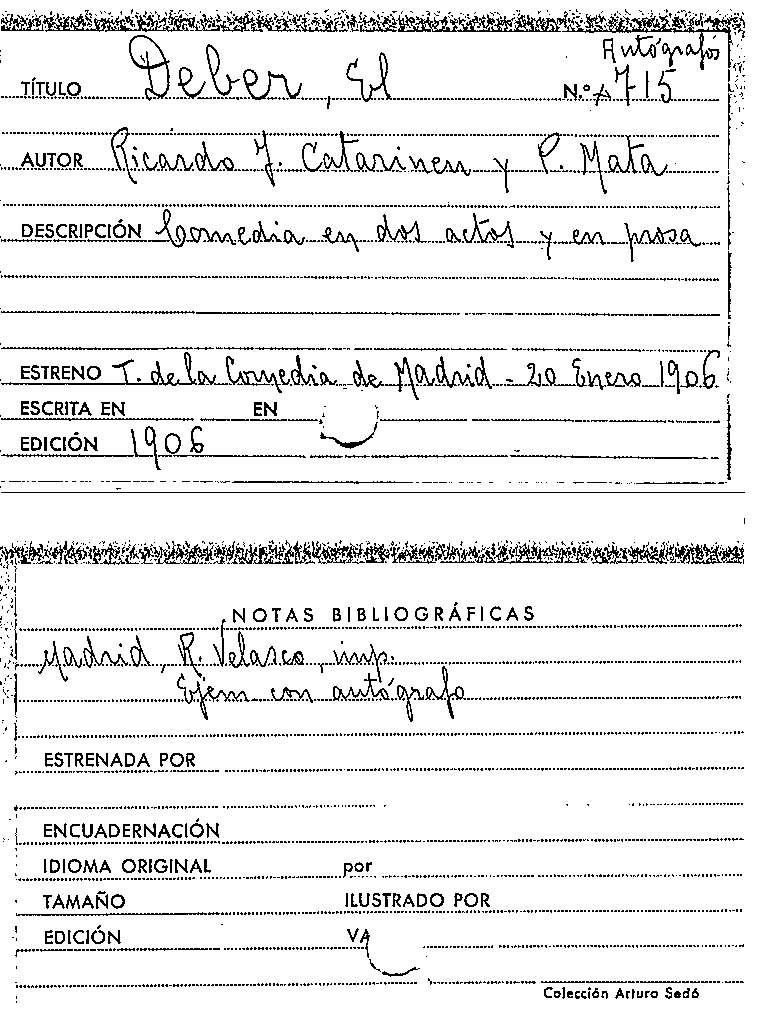 Autógrafos
TÍTULO Deber, El N.º A 715
AUTOR Ricardo J. Catarineu y P. Mata
DESCRIPCIÓN Comedia en dos actos y en prosa
ESTRENO T. de la Comedia de Madrid - 20 Enero 1906
ESCRITA EN EN
EDICIÓN 1906
NOTAS BIBLIOGRÁFICAS
Madrid, R. Velasco, imp.
Ejem con autógrafo
ESTRENADA POR
ENCUADERNACIÓN
IDIOMA ORIGINAL por
TAMAÑO ILUSTRADO POR
EDICIÓN VA
Colección Arturo Sedó